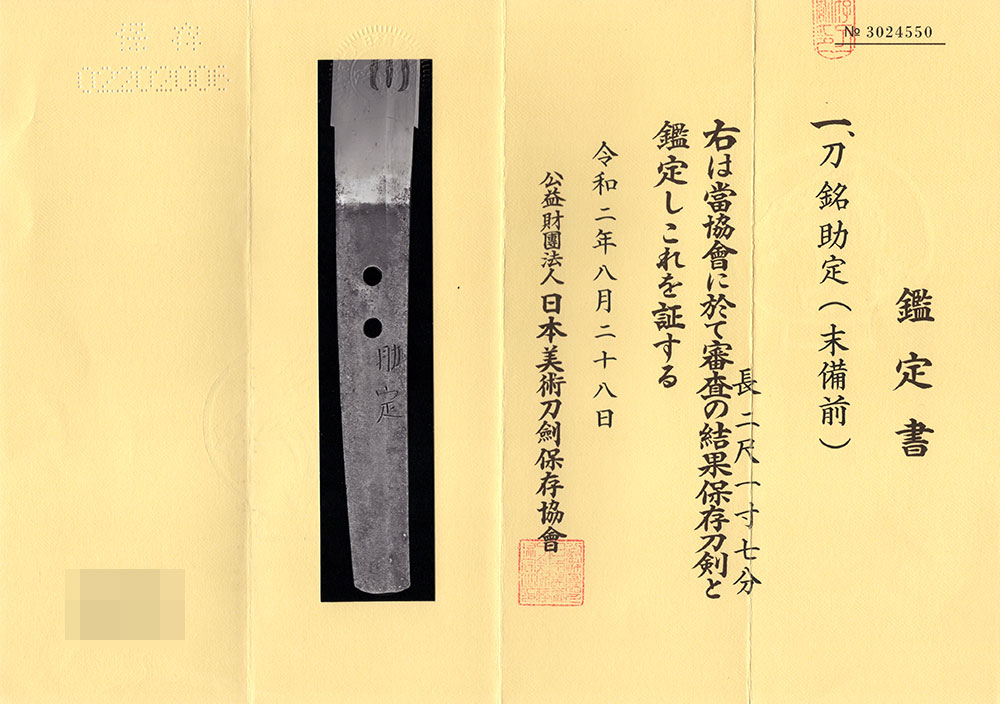 № 3024550
鑑定書
一、刀 銘 助定(末備前)
長 二尺一寸七分
右は當協會に於て審査の結果保存刀剣と
鑑定しこれを証する
令和二年八月二十八日
公益財團法人 日本美術刀劍保存協會
助定
保存
02202006